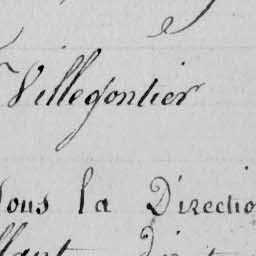 Villegontier
sous la Directio